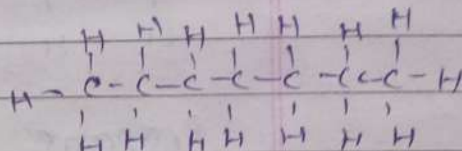 H H H H H H H
H - C - C - C - C - C - C c - C - H
H H H H H H H